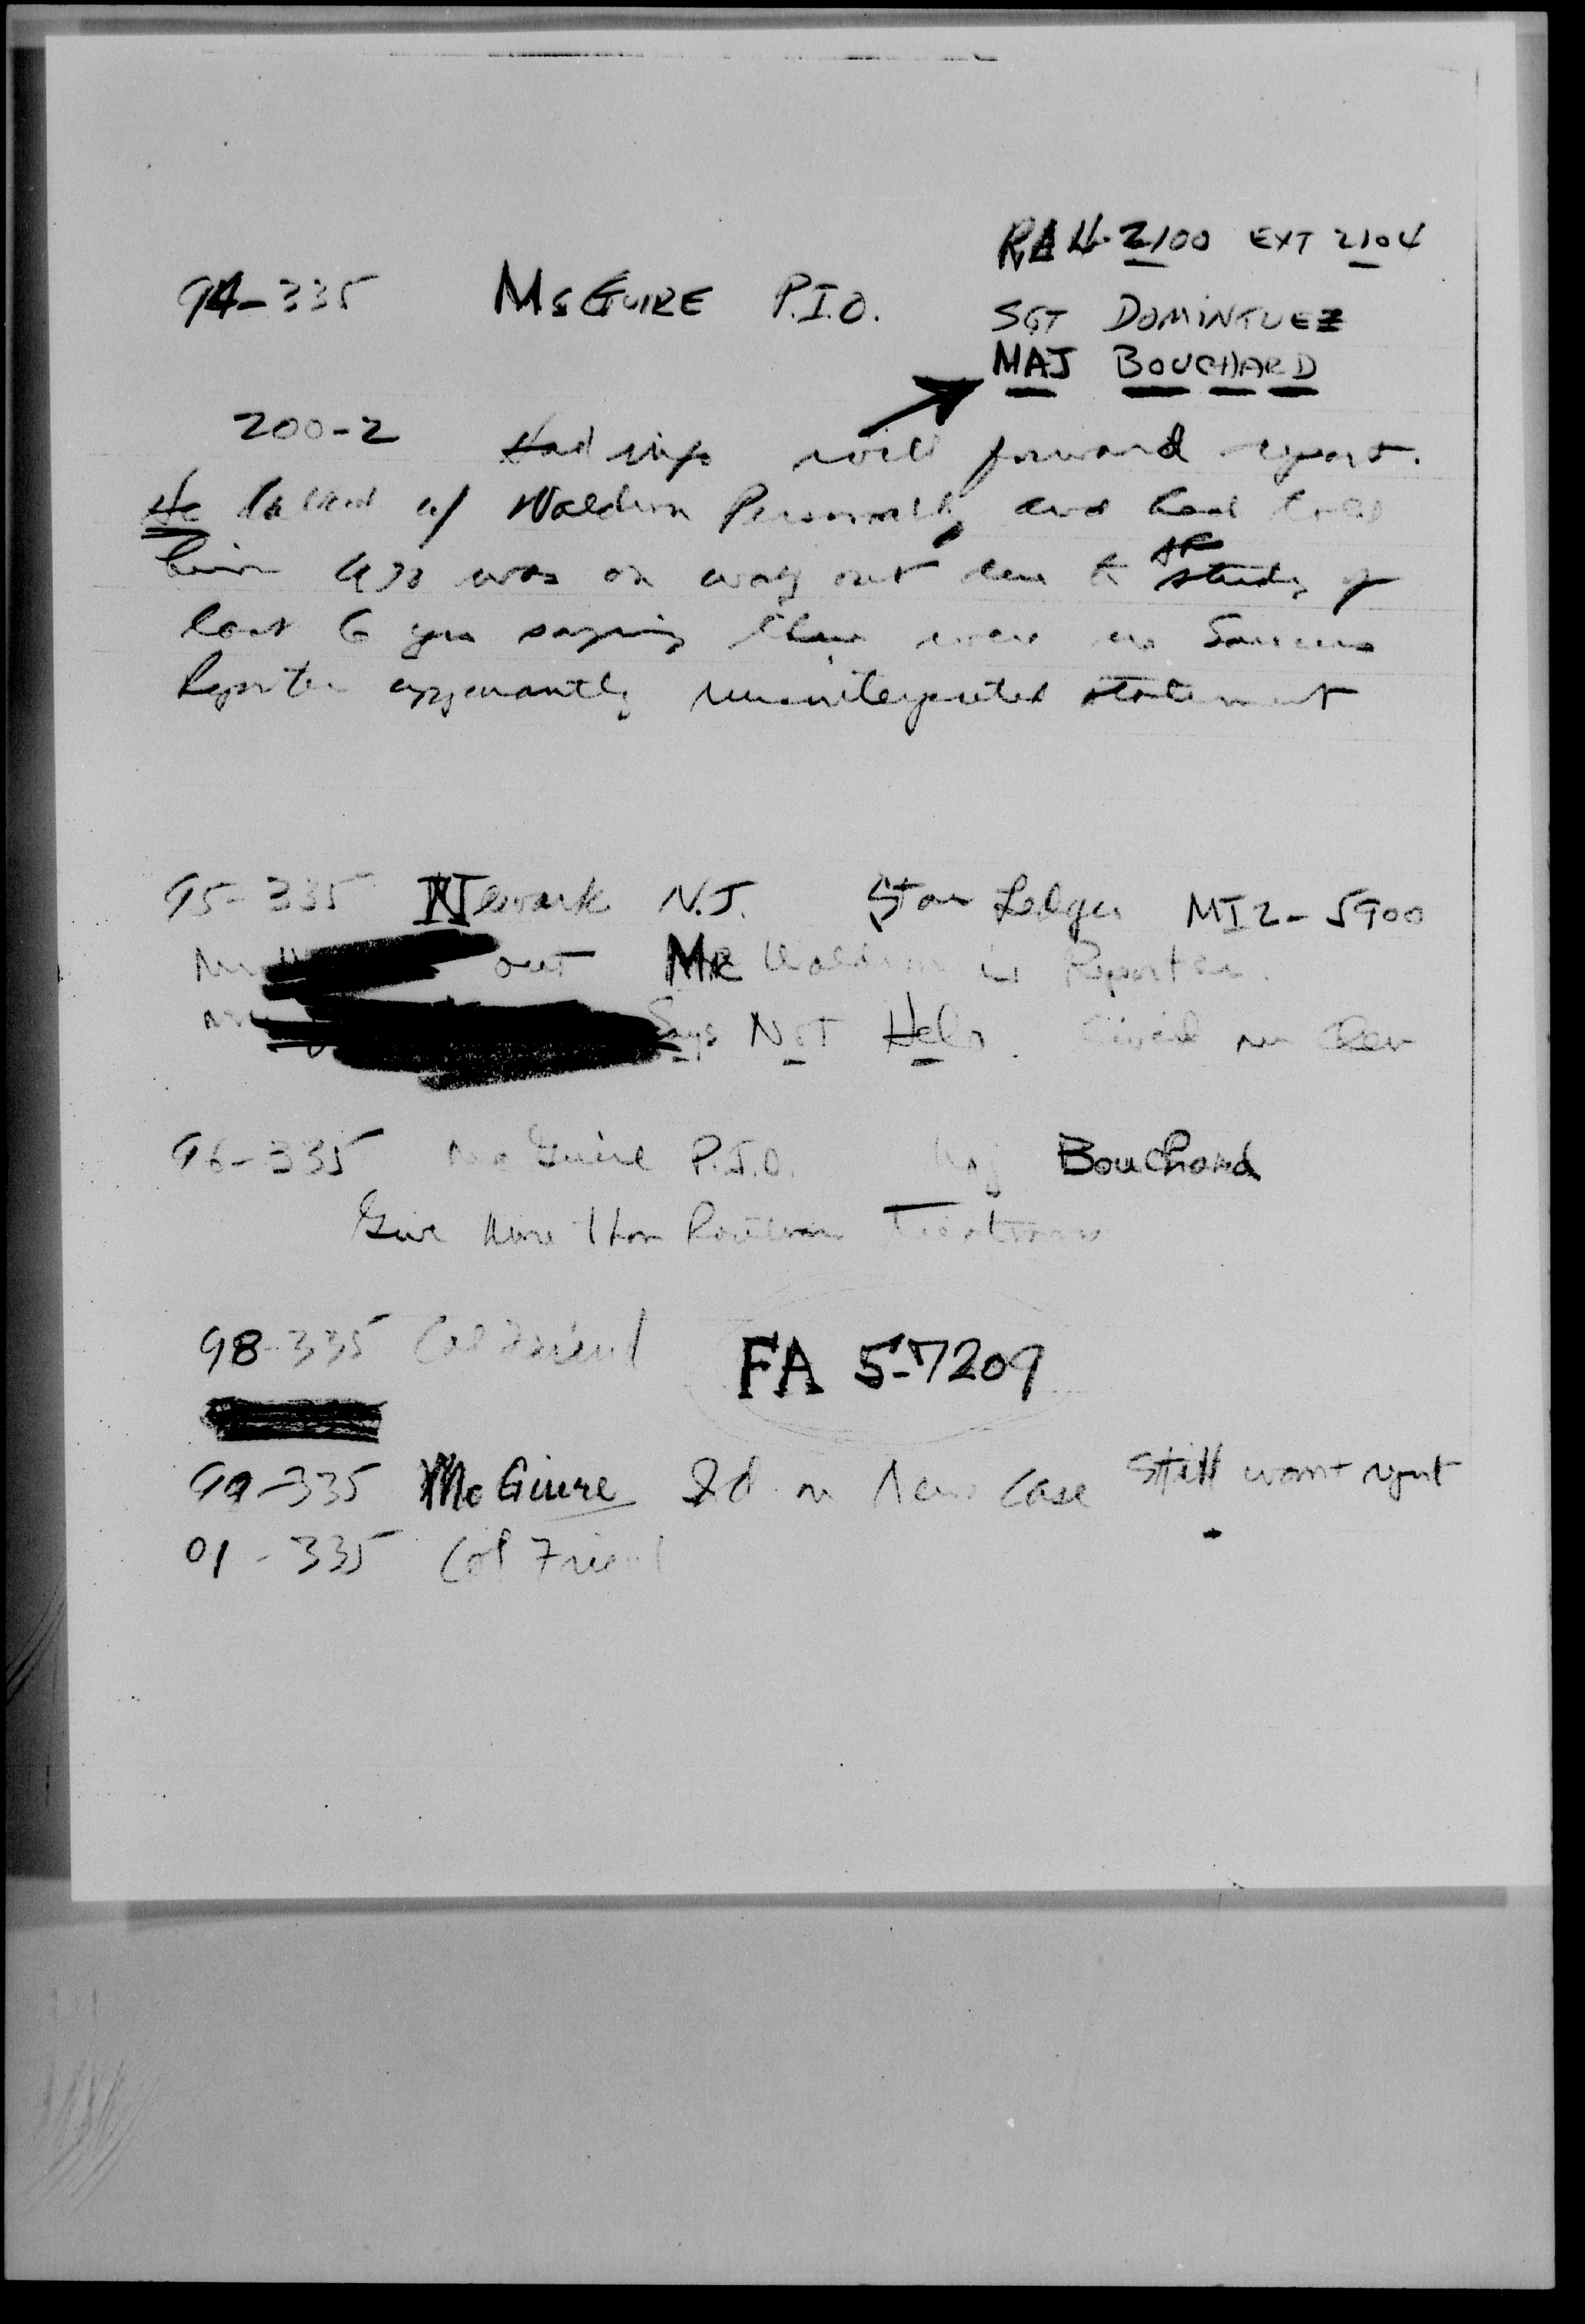 RA 4-2100 EXT 2104
94-335 McGUIRE P.I.O.
SGT DOMINTUEZ
MAJ BOUCHARD
200-2 Had info will forward report.
He talked w/ Waldron Personally and had told
him was on way out due to AF study of
last 6 yrs saying there were no Saucers
Reporter apparantly misinterpreted statement
95-335 Newark N.J. Star Ledger MI2-5900
out MR Waldron is Reporter.
Says NOT Help.
96-335 McGuire P.I.O. Maj Bouchard
Give More than Routine Treatment
98-335 Col Friend FA 5-7209
99-335 McGuire on New Case Still want report
01-335 Col Friend